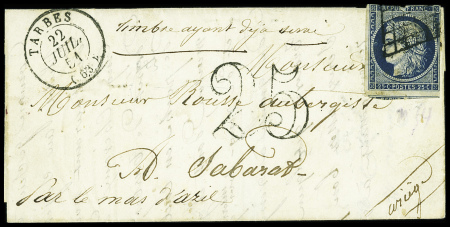 TARBES
22
JUIL.
51
(63)
timbre ayant déja servi
REPUB. FRANC.
25 C POSTES 25 C
Monsieur
Monsieur Rousse aubergiste
25
A Sabarat
Par le mas d'azil
ariège